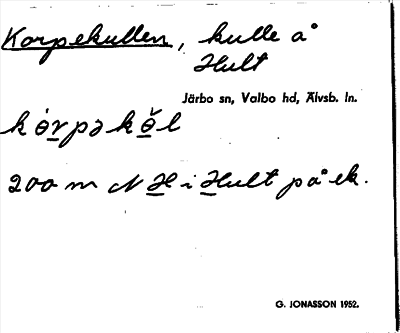 Korpekullen, kulle å
Hult
Järbo sn, Valbo hd, Älvsb. ln.
200 m N H i Hult på ek.
G. JONASSON 1952.